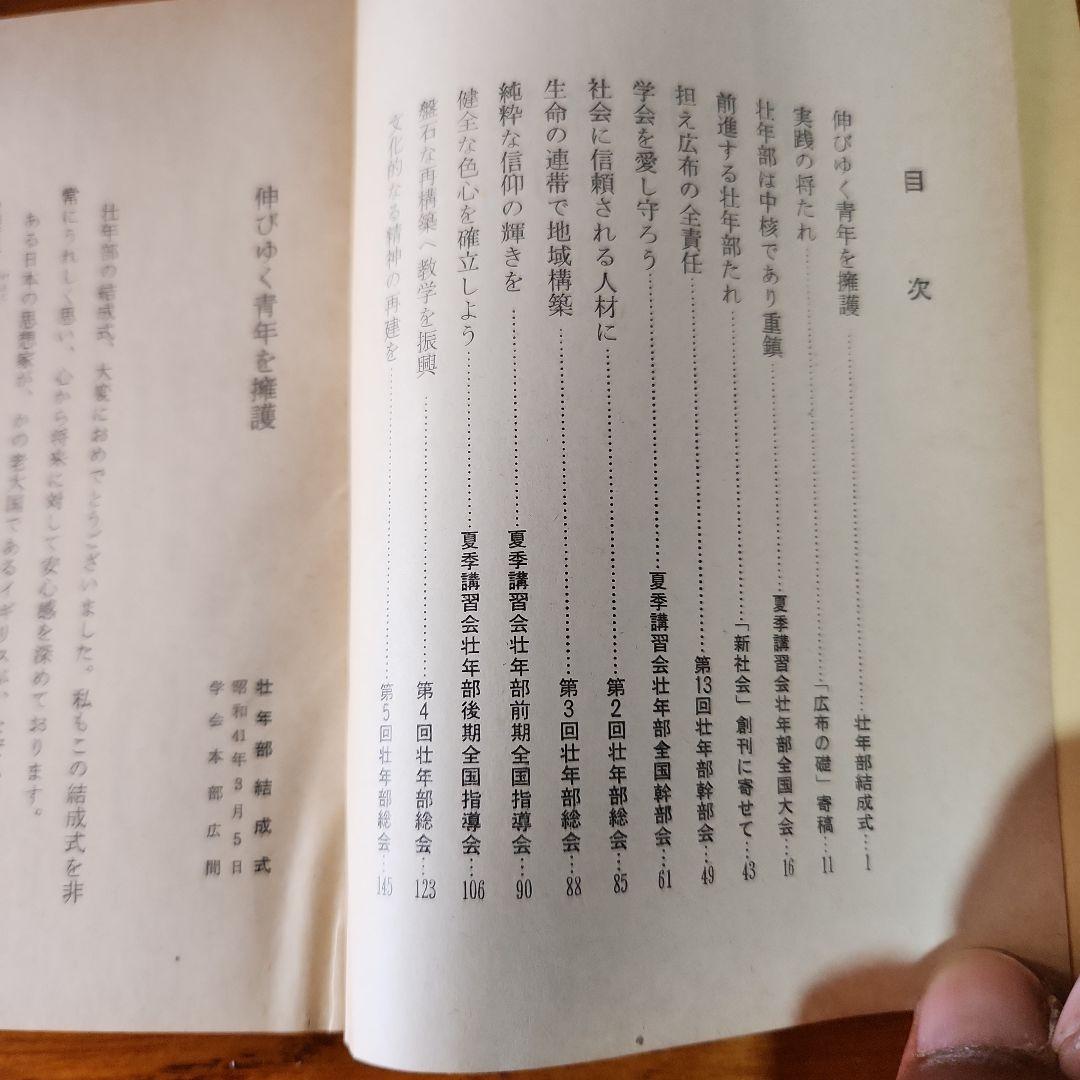 目次
伸びゆく青年を擁護……壮年部結成式…1
実践の将たれ……「広布の礎」寄稿…11
壮年部は中核であり重鎮……夏季講習会壮年部全国大会…16
前進する壮年部たれ……「新社会」創刊に寄せて…43
担え広布の全責任……第13回壮年部幹部会…49
学会を愛し守ろう……夏季講習会壮年部全国幹部会…61
社会に信頼される人材に……第2回壮年部総会…85
生命の連帯で地域構築……第3回壮年部総会…88
純粋な信仰の輝きを……夏季講習会壮年部前期全国指導会…90
健全な色心を確立しよう……夏季講習会壮年部後期全国指導会…106
盤石な再構築へ教学を振興……第4回壮年部総会…123
文化的なる精神の再建を……第5回壮年部総会…145
伸びゆく青年を擁護
壮年部結成式
昭和41年3月5日
学会本部広間
壮年部の結成式、大変におめでとうございました。私もこの結成式を非
常にうれしく思い、心から将来に対して安心感を深めております。
ある日本の思想家が、かの老大国であるイギリス